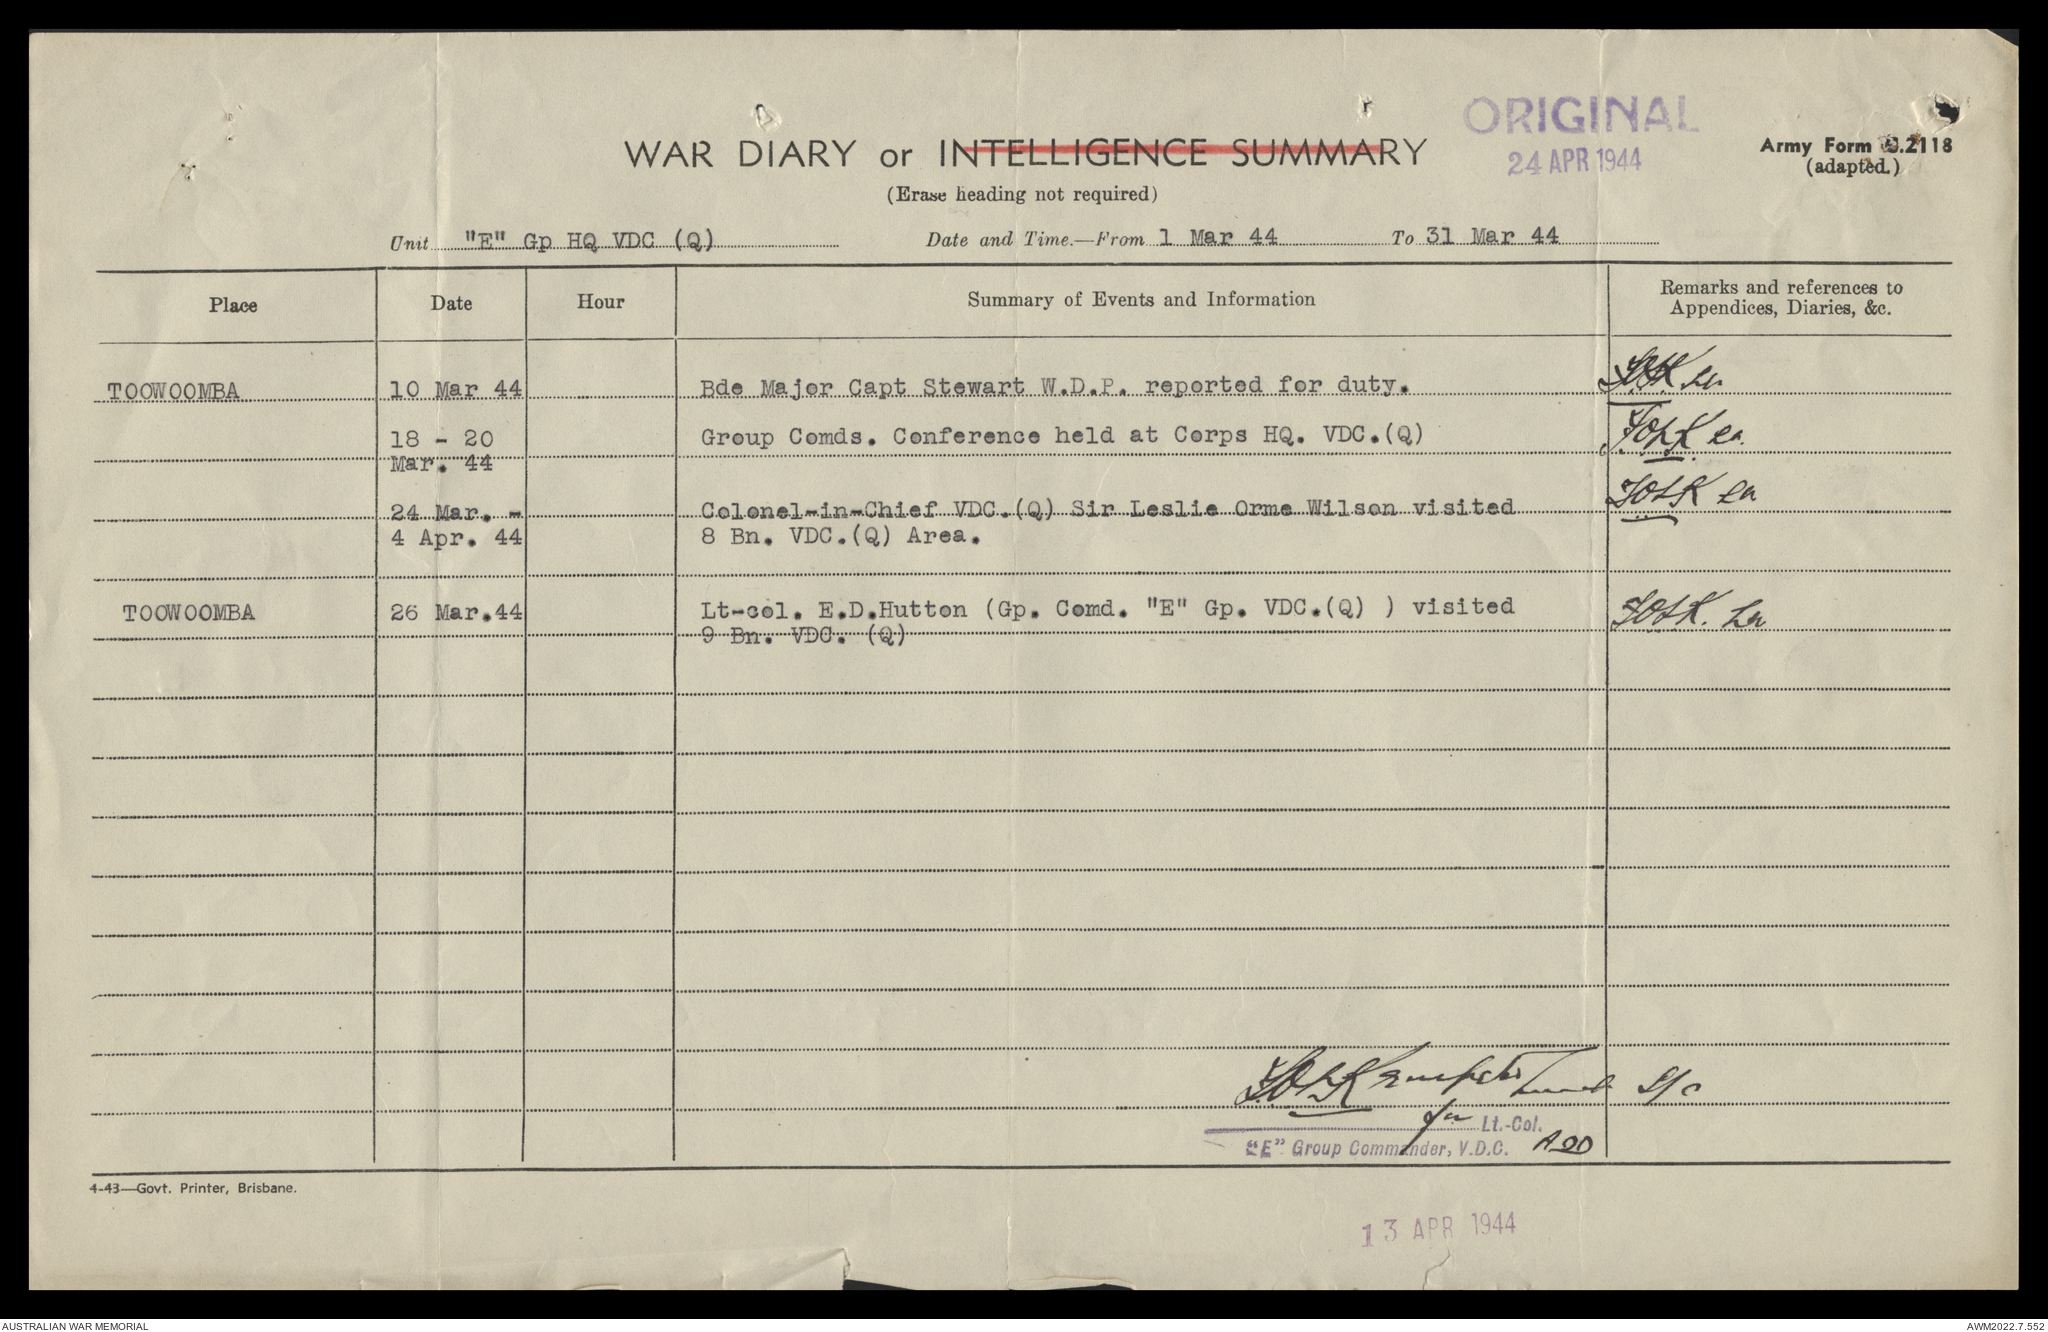 ORIGINAL
24 APR 1944
WAR DIARY or INTELLIGENCE SUMMARY
(Erase heading not required)
Army Form C.2118
(adapted.)
Unit "E" Gp HQ VDC (Q) Date and Time.—From 1 Mar 44 To 31 Mar 44
Place Date Hour Summary of Events and Information Remarks and references to
Appendices, Diaries, &c.
TOOWOOMBA 10 Mar 44 Bde Major Capt Stewart W.D.P. reported for duty.
18 - 20 Group Comds. Conference held at Corps HQ. VDC.(Q)
Mar. 44
24 Mar. - Colonel-in-Chief VDC.(Q) Sir Leslie Orme Wilson visited
4 Apr. 44 8 Bn. VDC.(Q) Area.
TOOWOOMBA 26 Mar.44 Lt-col. E.D.Hutton (Gp. Comd. "E" Gp. VDC.(Q) ) visited
9 Bn. VDC. (Q)
for Lt.-Col.
"E" Group Commander, V.D.C.
4-43—Govt. Printer, Brisbane.
13 APR 1944
AUSTRALIAN WAR MEMORIAL
AWM2022.7.552